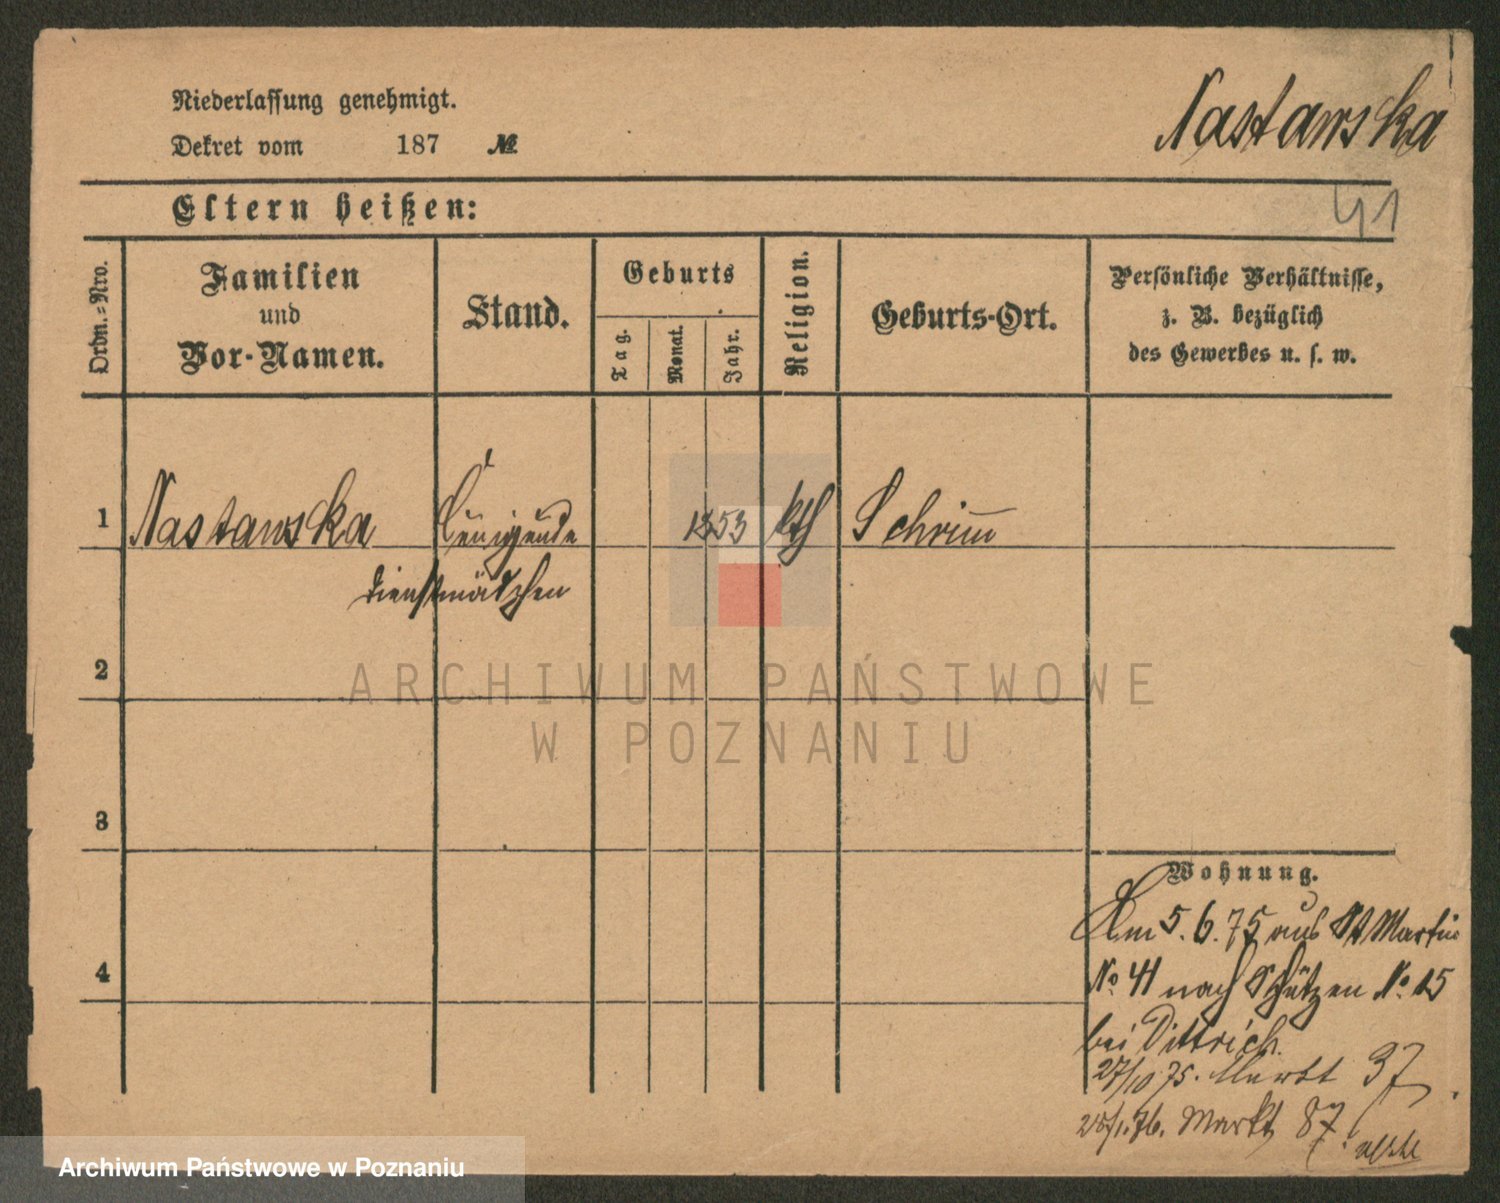 Niederlassung genehmigt.
Dekret vom 187 №
Nastawska
41
Eltern heißen:
Ordn.-Nro.
Familien
und
Vor-Namen.
Stand.
Geburts
Tag.
Monat.
Jahr.
Religion.
Geburts-Ort.
Persönliche Verhältnisse,
z. B. bezüglich
des Gewerbes u. s. w.
1 Nastawska 1853 kth Schrimm
dienstmädchen
2
3
4
Wohnung.
Am 5.6.75 aus St Martin
No 41 nach Schützen No 15
bei Dittrich.
27/10 75. Markt 37
1.76. Markt 87
ARCHIWUM PAŃSTWOWE
W POZNANIU
Archiwum Państwowe w Poznaniu